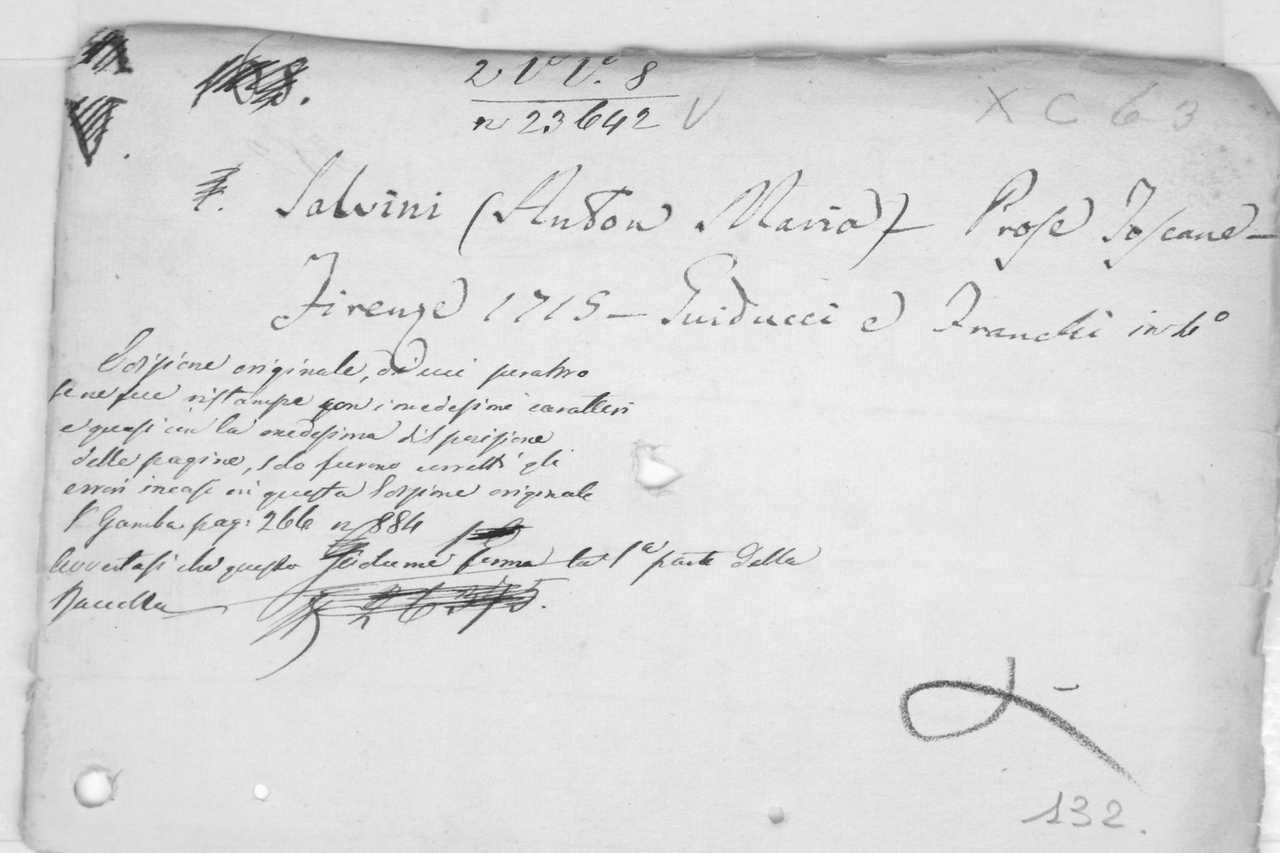 2 V° V.° 8
n 23642 V
X C 63
Salvini (Anton Maria) - Prose Toscane -
Firenze 1715 - Guiducci e Franchi in 4°
Edizione originale, di cui peraltro
se ne fece ristampe con i medesimi caratteri
e quasi con la medesima disposizione
delle pagine, solo furono corretti gli
errori incorsi in questa Edizione originale
V. Gamba pag: 266 n 884
Avvertasi che questo Volume forma la 1a parte della
Raccolta
132.